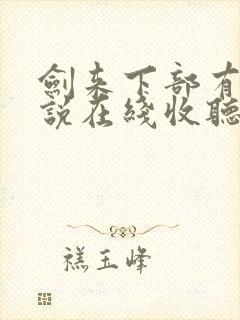 劍来下部有
説在綫收聽
禚玉峰